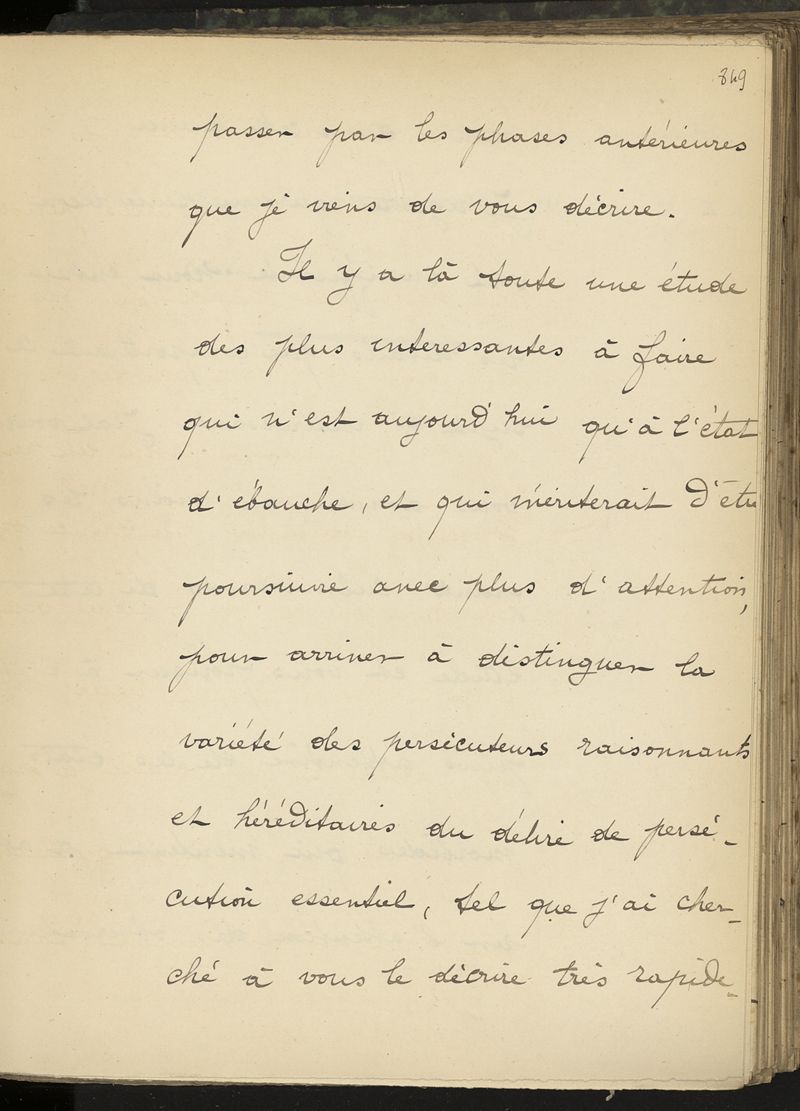 849
passer par les phases antérieures
que je viens de vous décrire.
Il y a là toute une étude
des plus interessantes à faire
qui n'est aujourd'hui qu'à l'état
d'ébauche, et qui mériterait d'êtr
poursuivie avec plus d'attention,
pour arriver à distinguer la
variété des persécuteurs raisonnants
et héréditaires du délire de persé-
cution essentiel, tel que j'ai cher-
ché à vous le décrire très rapide-